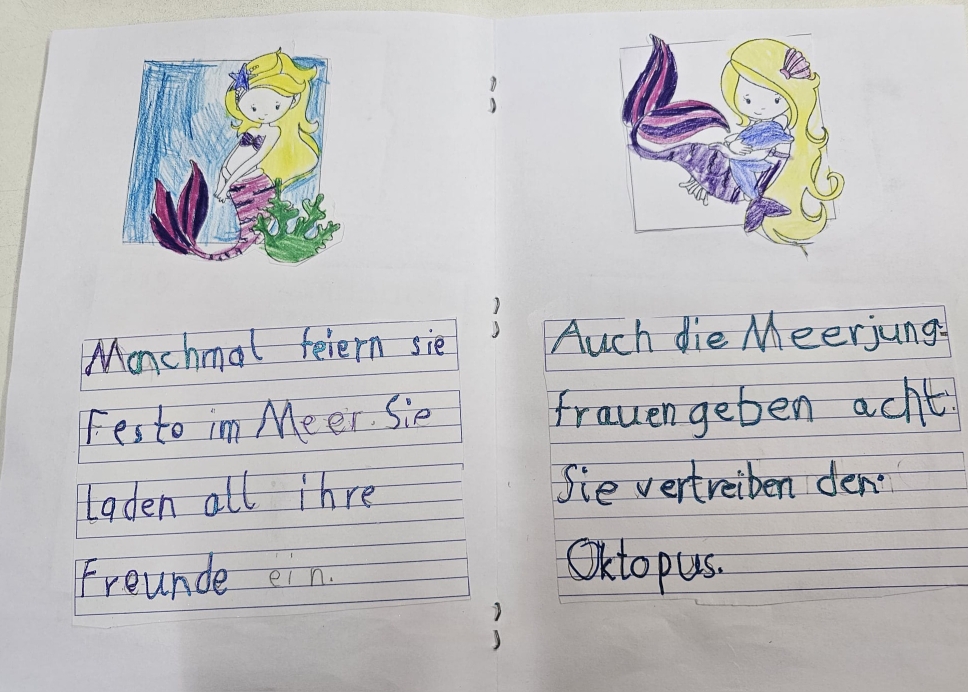 Manchmal feiern sie
Feste im Meer. Sie
laden all ihre
Freunde ein.
Auch die Meerjung-
frauen geben acht.
Sie vertreiben den
Oktopus.